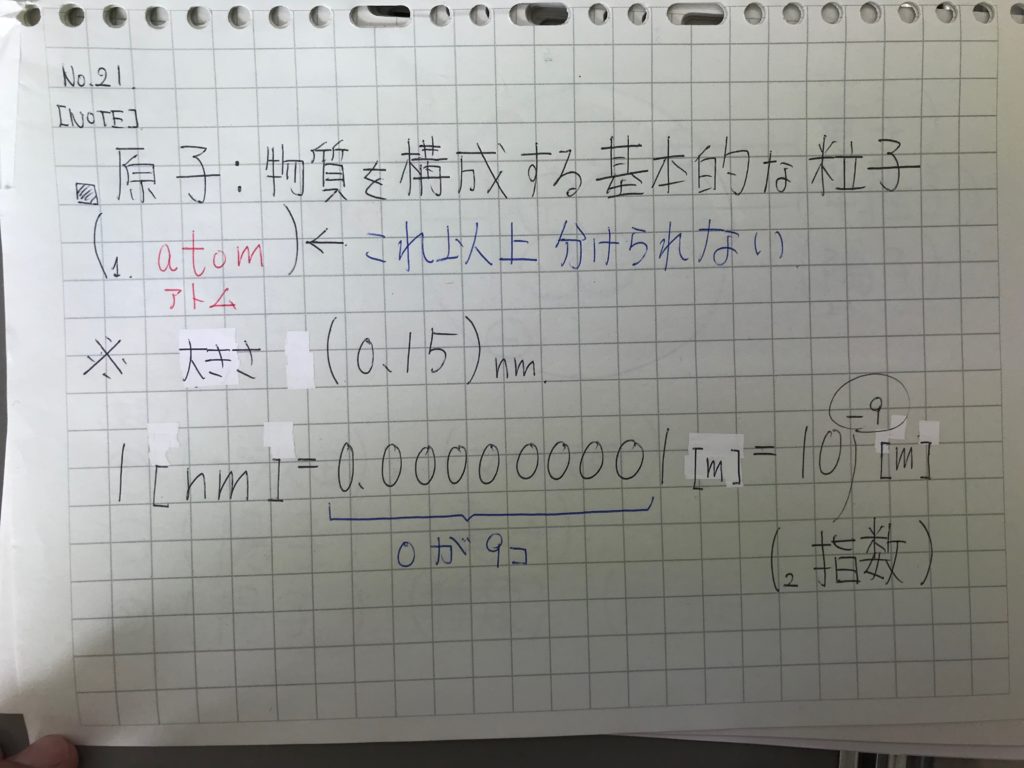 No.21.
[NOTE]
原子:物質を構成する基本的な粒子
(1. atom)← これ以上分けられない
アトム
※ 大きさ (0.15)nm.
1[nm]=0.000000001[m]=10⁻⁹[m]
0が9コ
(2 指数)